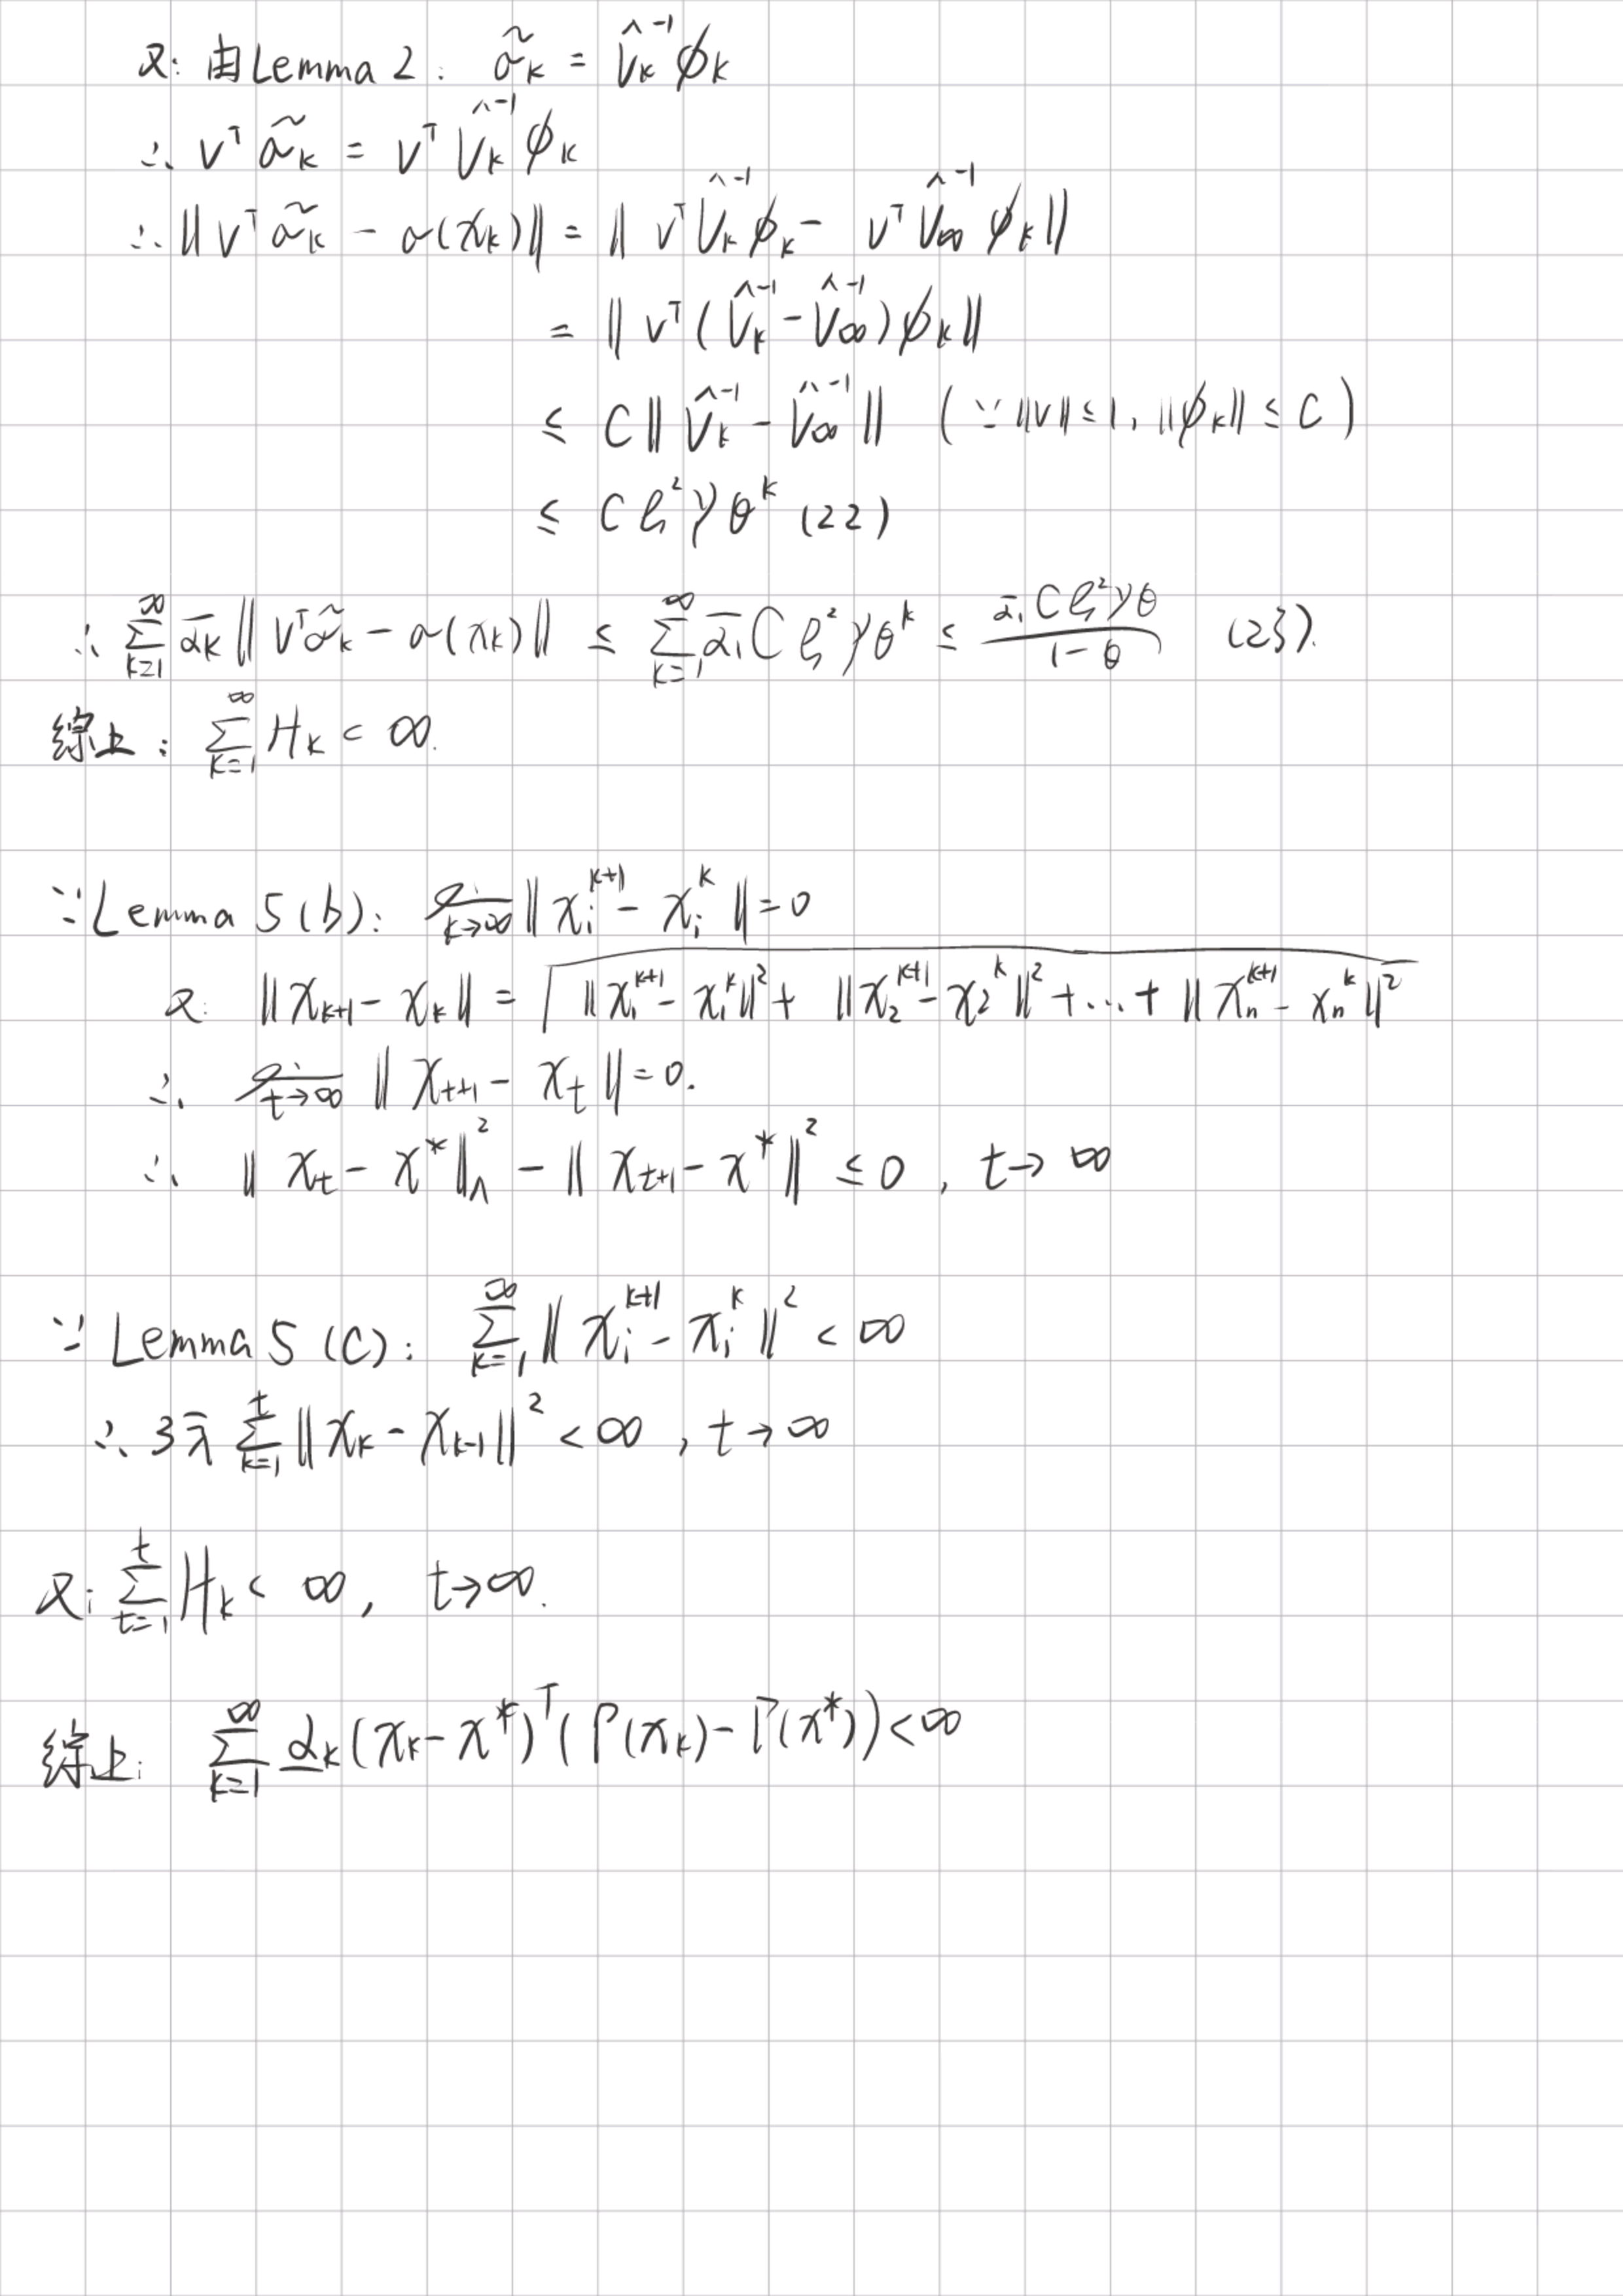 又: 由Lemma 2: σ̃_k = V̂_k^{-1} φ_k
∴ v^T σ̃_k = v^T V̂_k^{-1} φ_k
∴ ‖v^T σ̃_k - σ(x_k)‖ = ‖ v^T V̂_k^{-1} φ_k - v^T V̂_∞^{-1} φ_k ‖
= ‖ v^T ( V̂_k^{-1} - V̂_∞^{-1} ) φ_k ‖
≤ C ‖ V̂_k^{-1} - V̂_∞^{-1} ‖ ( ∵ ‖v‖ ≤ 1, ‖φ_k‖ ≤ C )
≤ C ξ^2 γ θ^k (22)
∴ ∑_{k=1}^{∞} ᾱ_k ‖ v^T σ̃_k - σ(x_k) ‖ ≤ ∑_{k=1}^{∞} ᾱ_1 C ξ^2 γ θ^k ≤ \frac{ᾱ_1 C ξ^2 γ θ}{1-θ} (23).
综上: ∑_{k=1}^{∞} H_k < ∞.
∵ Lemma 5(b): lim_{k→∞} ‖ x_i^{k+1} - x_i^k ‖ = 0
又: ‖ x_{k+1} - x_k ‖ = \sqrt{‖x_1^{k+1} - x_1^k‖^2 + ‖x_2^{k+1} - x_2^k‖^2 + ... + ‖x_n^{k+1} - x_n^k‖^2}
∴ lim_{t→∞} ‖ x_{t+1} - x_t ‖ = 0.
∴ ‖ x_t - x^* ‖_Λ^2 - ‖ x_{t+1} - x^* ‖^2 ≤ 0 , t→∞
∵ Lemma 5 (c): ∑_{k=1}^{∞} ‖ x_i^{k+1} - x_i^k ‖^2 < ∞
∴ 3λ̄ ∑_{k=1}^{t} ‖ x_k - x_{k-1} ‖^2 < ∞ , t→∞
又: ∑_{t=1}^{t} H_k < ∞, t→∞.
综上: ∑_{k=1}^{∞} \underline{α}_k (x_k - x^*)^T ( Γ(x_k) - Γ(x^*) ) < ∞